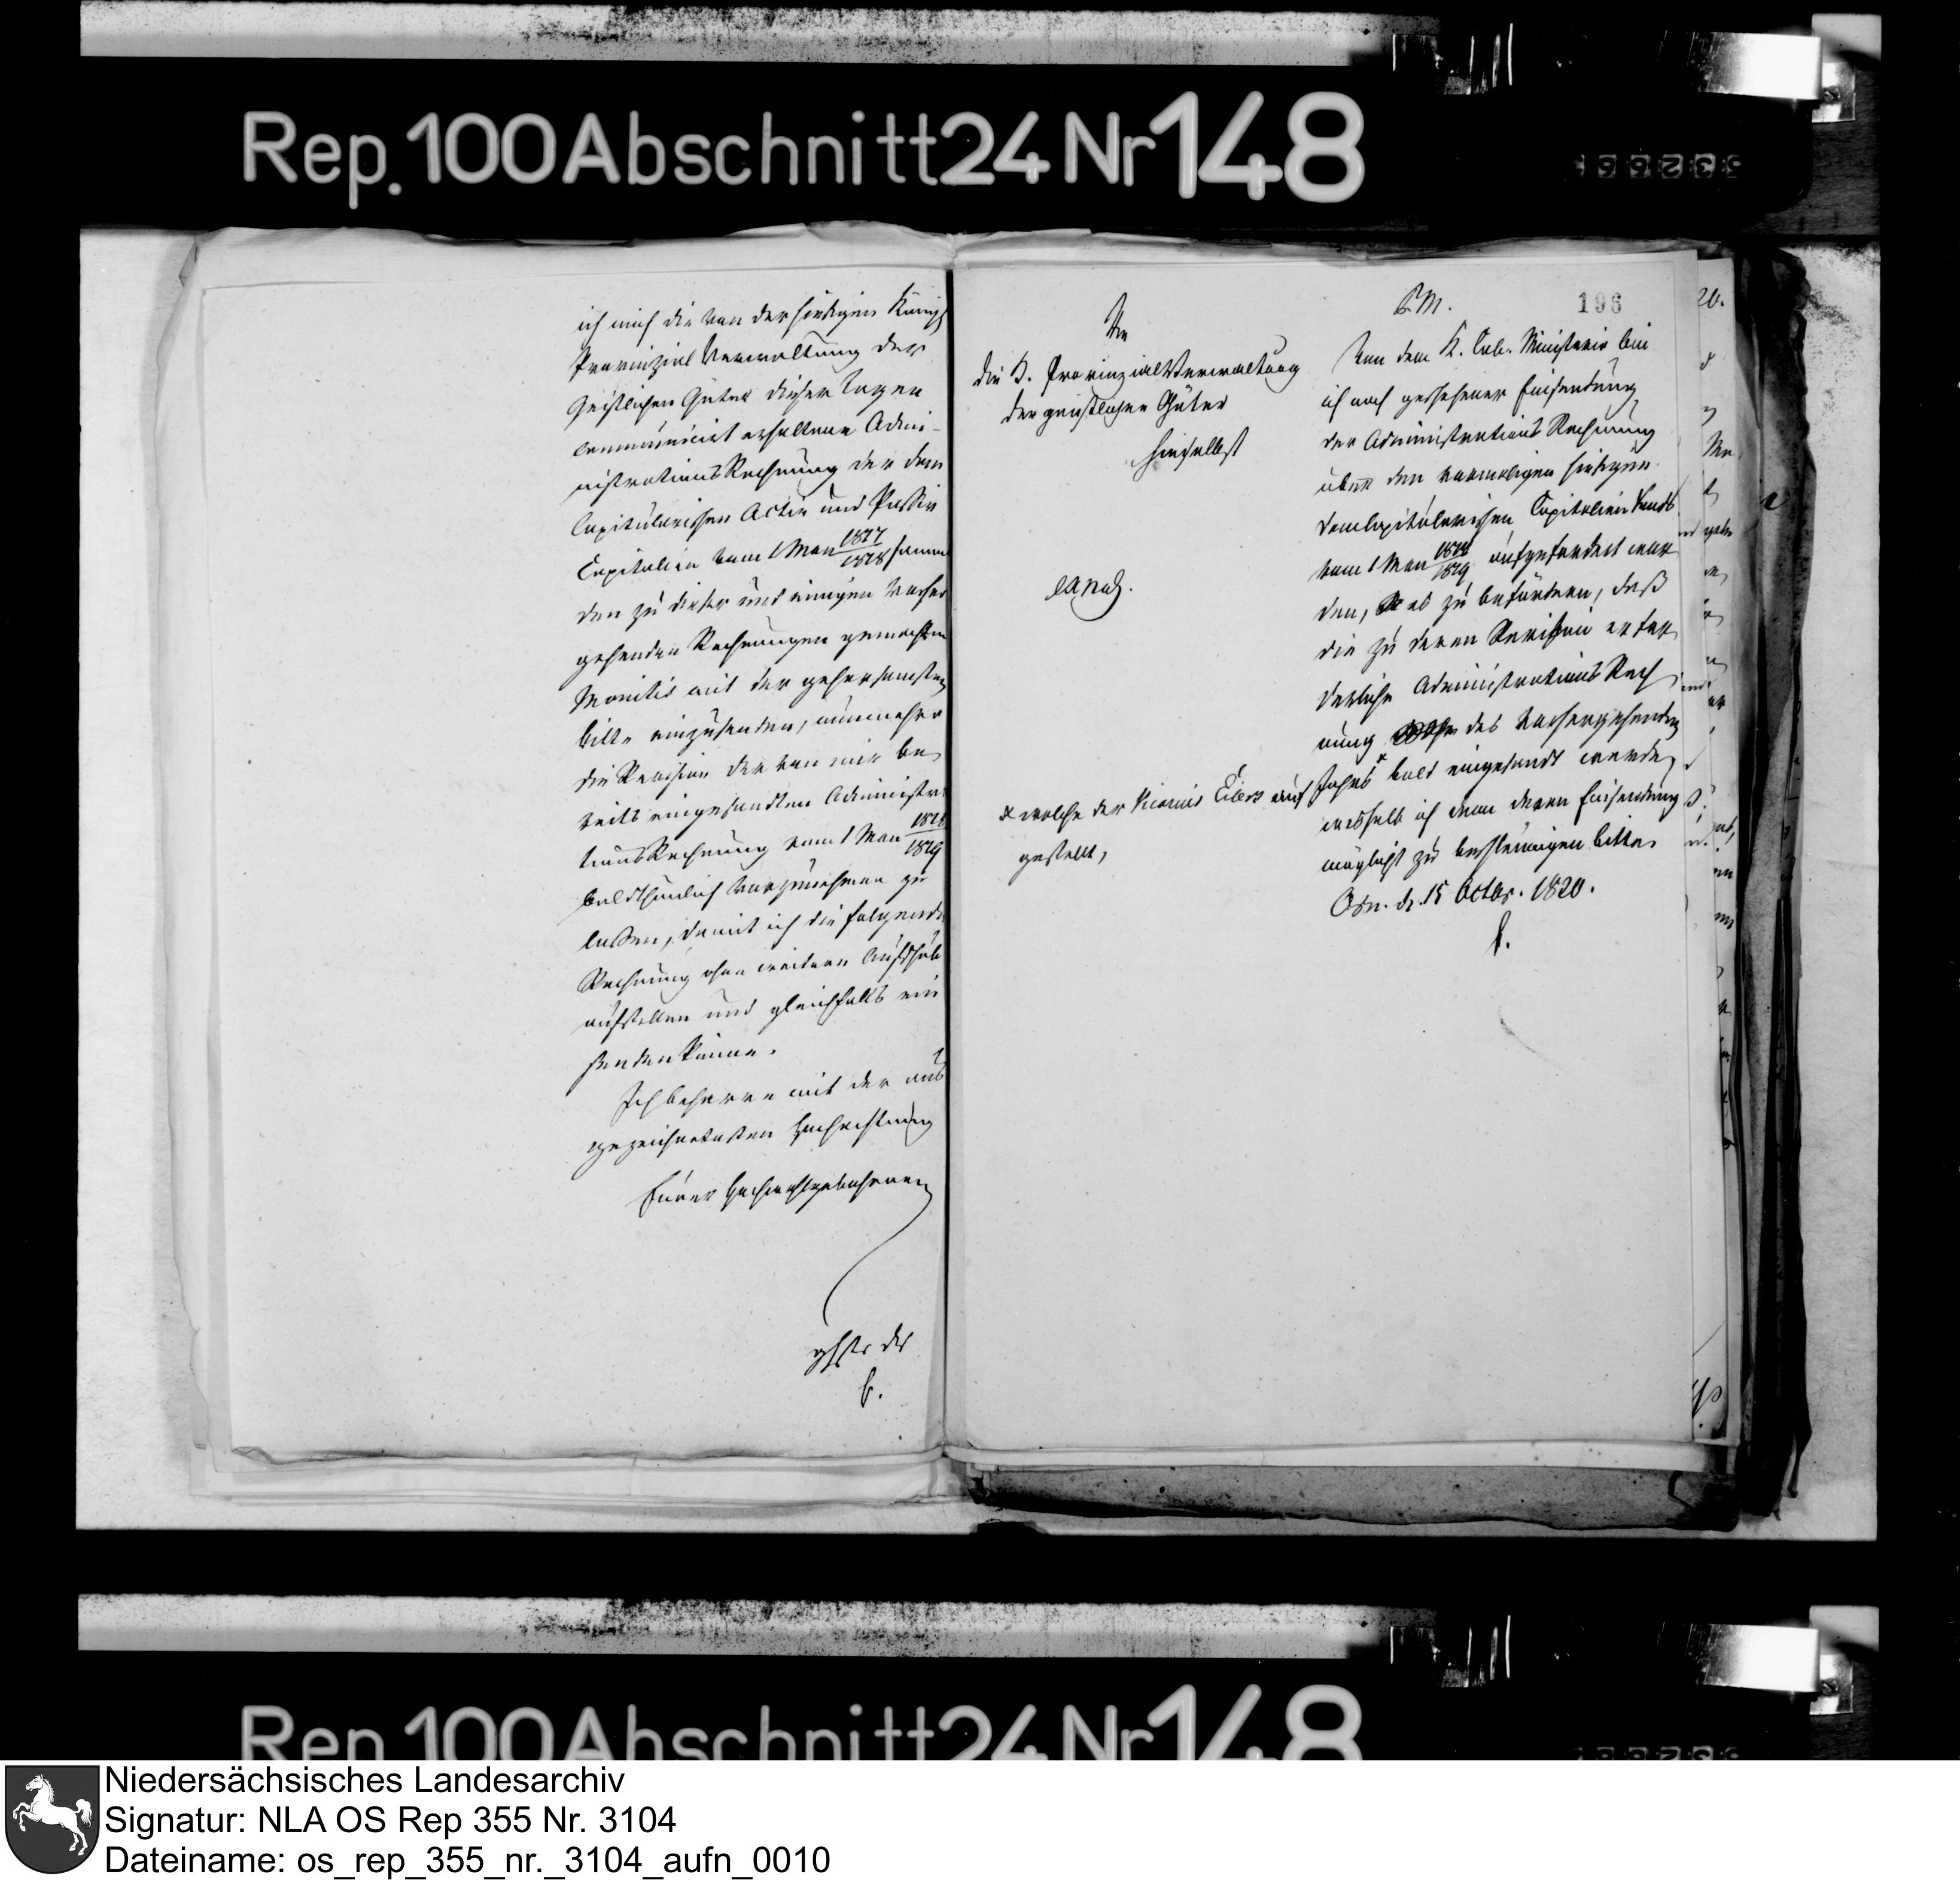 Rep. 100 Abschnitt 24 Nr 148
ich mich die von der hiesigen Königl
Provinzial Verwaltung der
Geistlichen Güter dieser Tagen
communicirt erhaltene Admi-
nistrations Rechnung der dom
Capitularischen Activ und Passiv
Capitalien vom 1 May 1817/1818 samt
den zu dieser und einigen vorher
gehenden Rechnungen gemachten
Monitis mit der gehorsamsten
Bitte einzusenden, nunmehro
die Revision der von mir be
reits eingesandten Administra
tions Rechnung vom 1 May 1818/1819
baldthunlich vorzunehmen zu
laßen, damit ich die folgende
Rechnung ohne weitern Aufschub
aufstellen und gleichfalls ein
senden könne.
Ich beharre mit der aus
gezeichnetesten Hochachtung
Euer Hochwohlgebohren
196
An
die K. Provinzial Verwaltung
der geistlichen Güter
hieselbst
P.M.
Von dem K. Cab. Ministerio bin
ich nach geschehener Einsendung
der Administrations Rechnung
über den vormaligen hiesigen
domCapitularischen Capitalien Fonds
vom 1 May 1818/1819 aufgefordert wor
den, es zu befördern, daß
die zu deren Revision erfor
derliche Administrations Rech
nung des vorhergehenden
Jahrs bald eingesandt werde,
weshalb ich denn deren Einsendung
möglichst zu beschleunigen bitte.
Osn. d. 15 Octbr. 1820.
welche der Vicarius Eilers auf
gestellt,
Rep. 100 Abschnitt 24 Nr 148
Niedersächsisches Landesarchiv
Signatur: NLA OS Rep 355 Nr. 3104
Dateiname: os_rep_355_nr._3104_aufn_0010